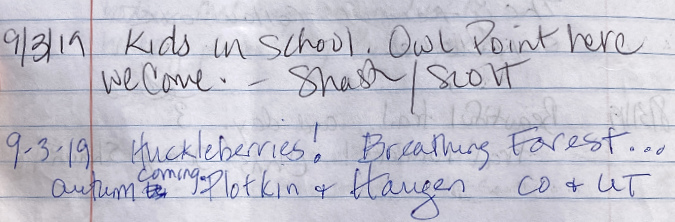 9/3/19 Kids in school. Owl Point here
we come. - Shash/Scott
9-3-19 Huckleberries! Breathing Forest...
autumn coming. Plotkin & Haugen CO & UT